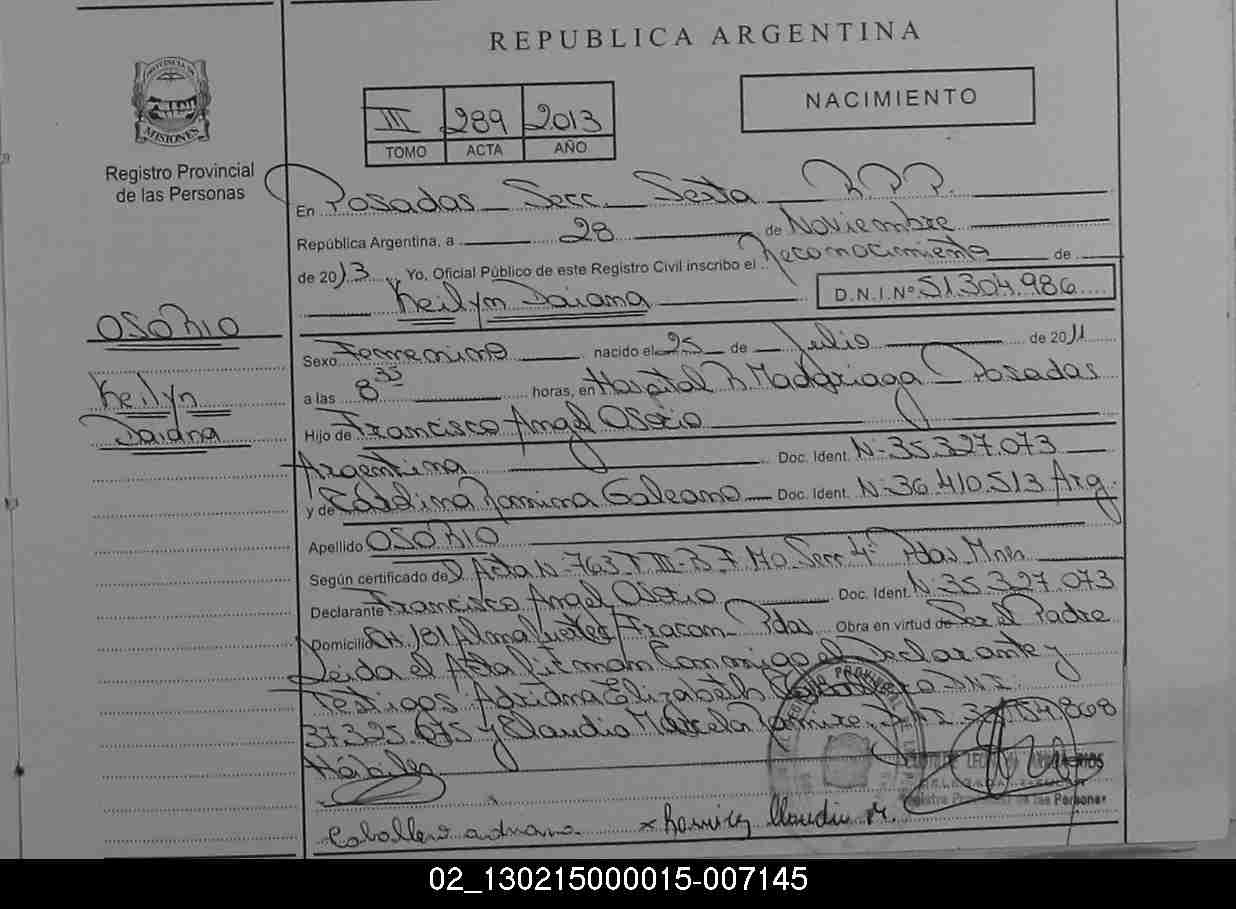 REPUBLICA ARGENTINA
PROVINCIA DE
MISIONES
Registro Provincial
de las Personas
III 289 2013
TOMO ACTA AÑO
NACIMIENTO
En Posadas Secc. Sexta R.P.P.
República Argentina, a 28 de Noviembre
de 2013 Yo, Oficial Público de este Registro Civil inscribo el Reconocimiento de
Keilyn Daiana D.N.I. Nº 51.304.986
OSORIO
Keilyn
Daiana
Sexo Femenino nacido el 25 de Julio de 2011
a las 8 35 horas, en Hospital R. Madariaga Posadas
Hijo de Francisco Angel Osorio
Argentina Doc. Ident. Nº 35.327.073
y de Romina Galeano Doc. Ident. Nº 36.410.513 Arg.
Apellido OSORIO
Según certificado de Acta Nº 763 T III Secc 4ª Pdas Mnes
Declarante Francisco Angel Osorio Doc. Ident. Nº 35.327.073
Domicilio CH. 181 Fracran Pdas Obra en virtud de Ser el Padre
Leida el Acta Firman Conmigo el Declarante y
Testigos Adriana Elizabeth DNI
37.325.075 y Claudia Marcela Ramirez
Hábiles
Caballero adriana x Ramirez Claudia M.
Registro Provincial de las Personas
02_130215000015-007145